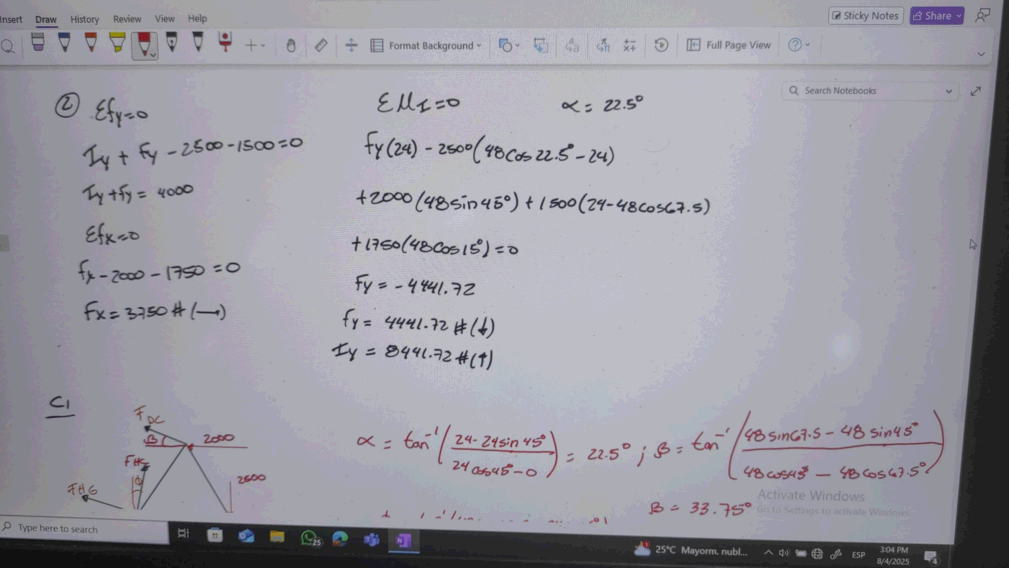 Insert Draw History Review View Help
Sticky Notes Share
Format Background Full Page View
Search Notebooks
② Σfy=0
Iy + Fy - 2500 - 1500 = 0
Iy + fy = 4000
Σfx=0
fx - 2000 - 1750 = 0
Fx = 3750 # (→)
ΣMI=0 α = 22.5°
Fy(24) - 2500(48Cos22.5° - 24)
+2000(48sin45°) + 1500(24-48cos67.5)
+1750(48Cos15°) = 0
Fy = -4441.72
fy = 4441.72 # (↓)
Iy = 8441.72 # (↑)
C1
FDC
β 2000
FHG
2500
α = tan⁻¹(24-24sin45°/24cos45°-0) = 22.5° ; β = tan⁻¹(48sin67.5 - 48sin45°/48cos45° - 48cos67.5°)
β = 33.75°
Activate Windows
Go to Settings to activate Windows.
Type here to search
25
25°C Mayorm. nubl...
ESP
3:04 PM
8/4/2025
4